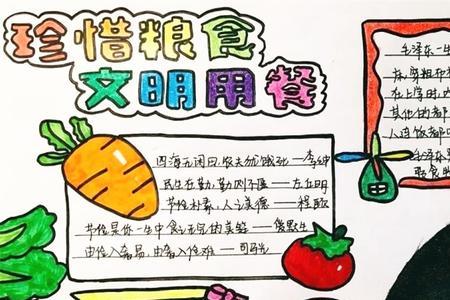 珍惜粮食
文明用餐
四海无闲田,农夫犹饿死——李绅
民生在勤,勤则不匮——左丘明
节俭朴素,人之美德——
节俭是你一生中食用不完的美筵——爱默生
由俭入奢易,由奢入俭难——司马光
毛泽东一生
在上学时,
其他的都
人连饭都
毛泽东